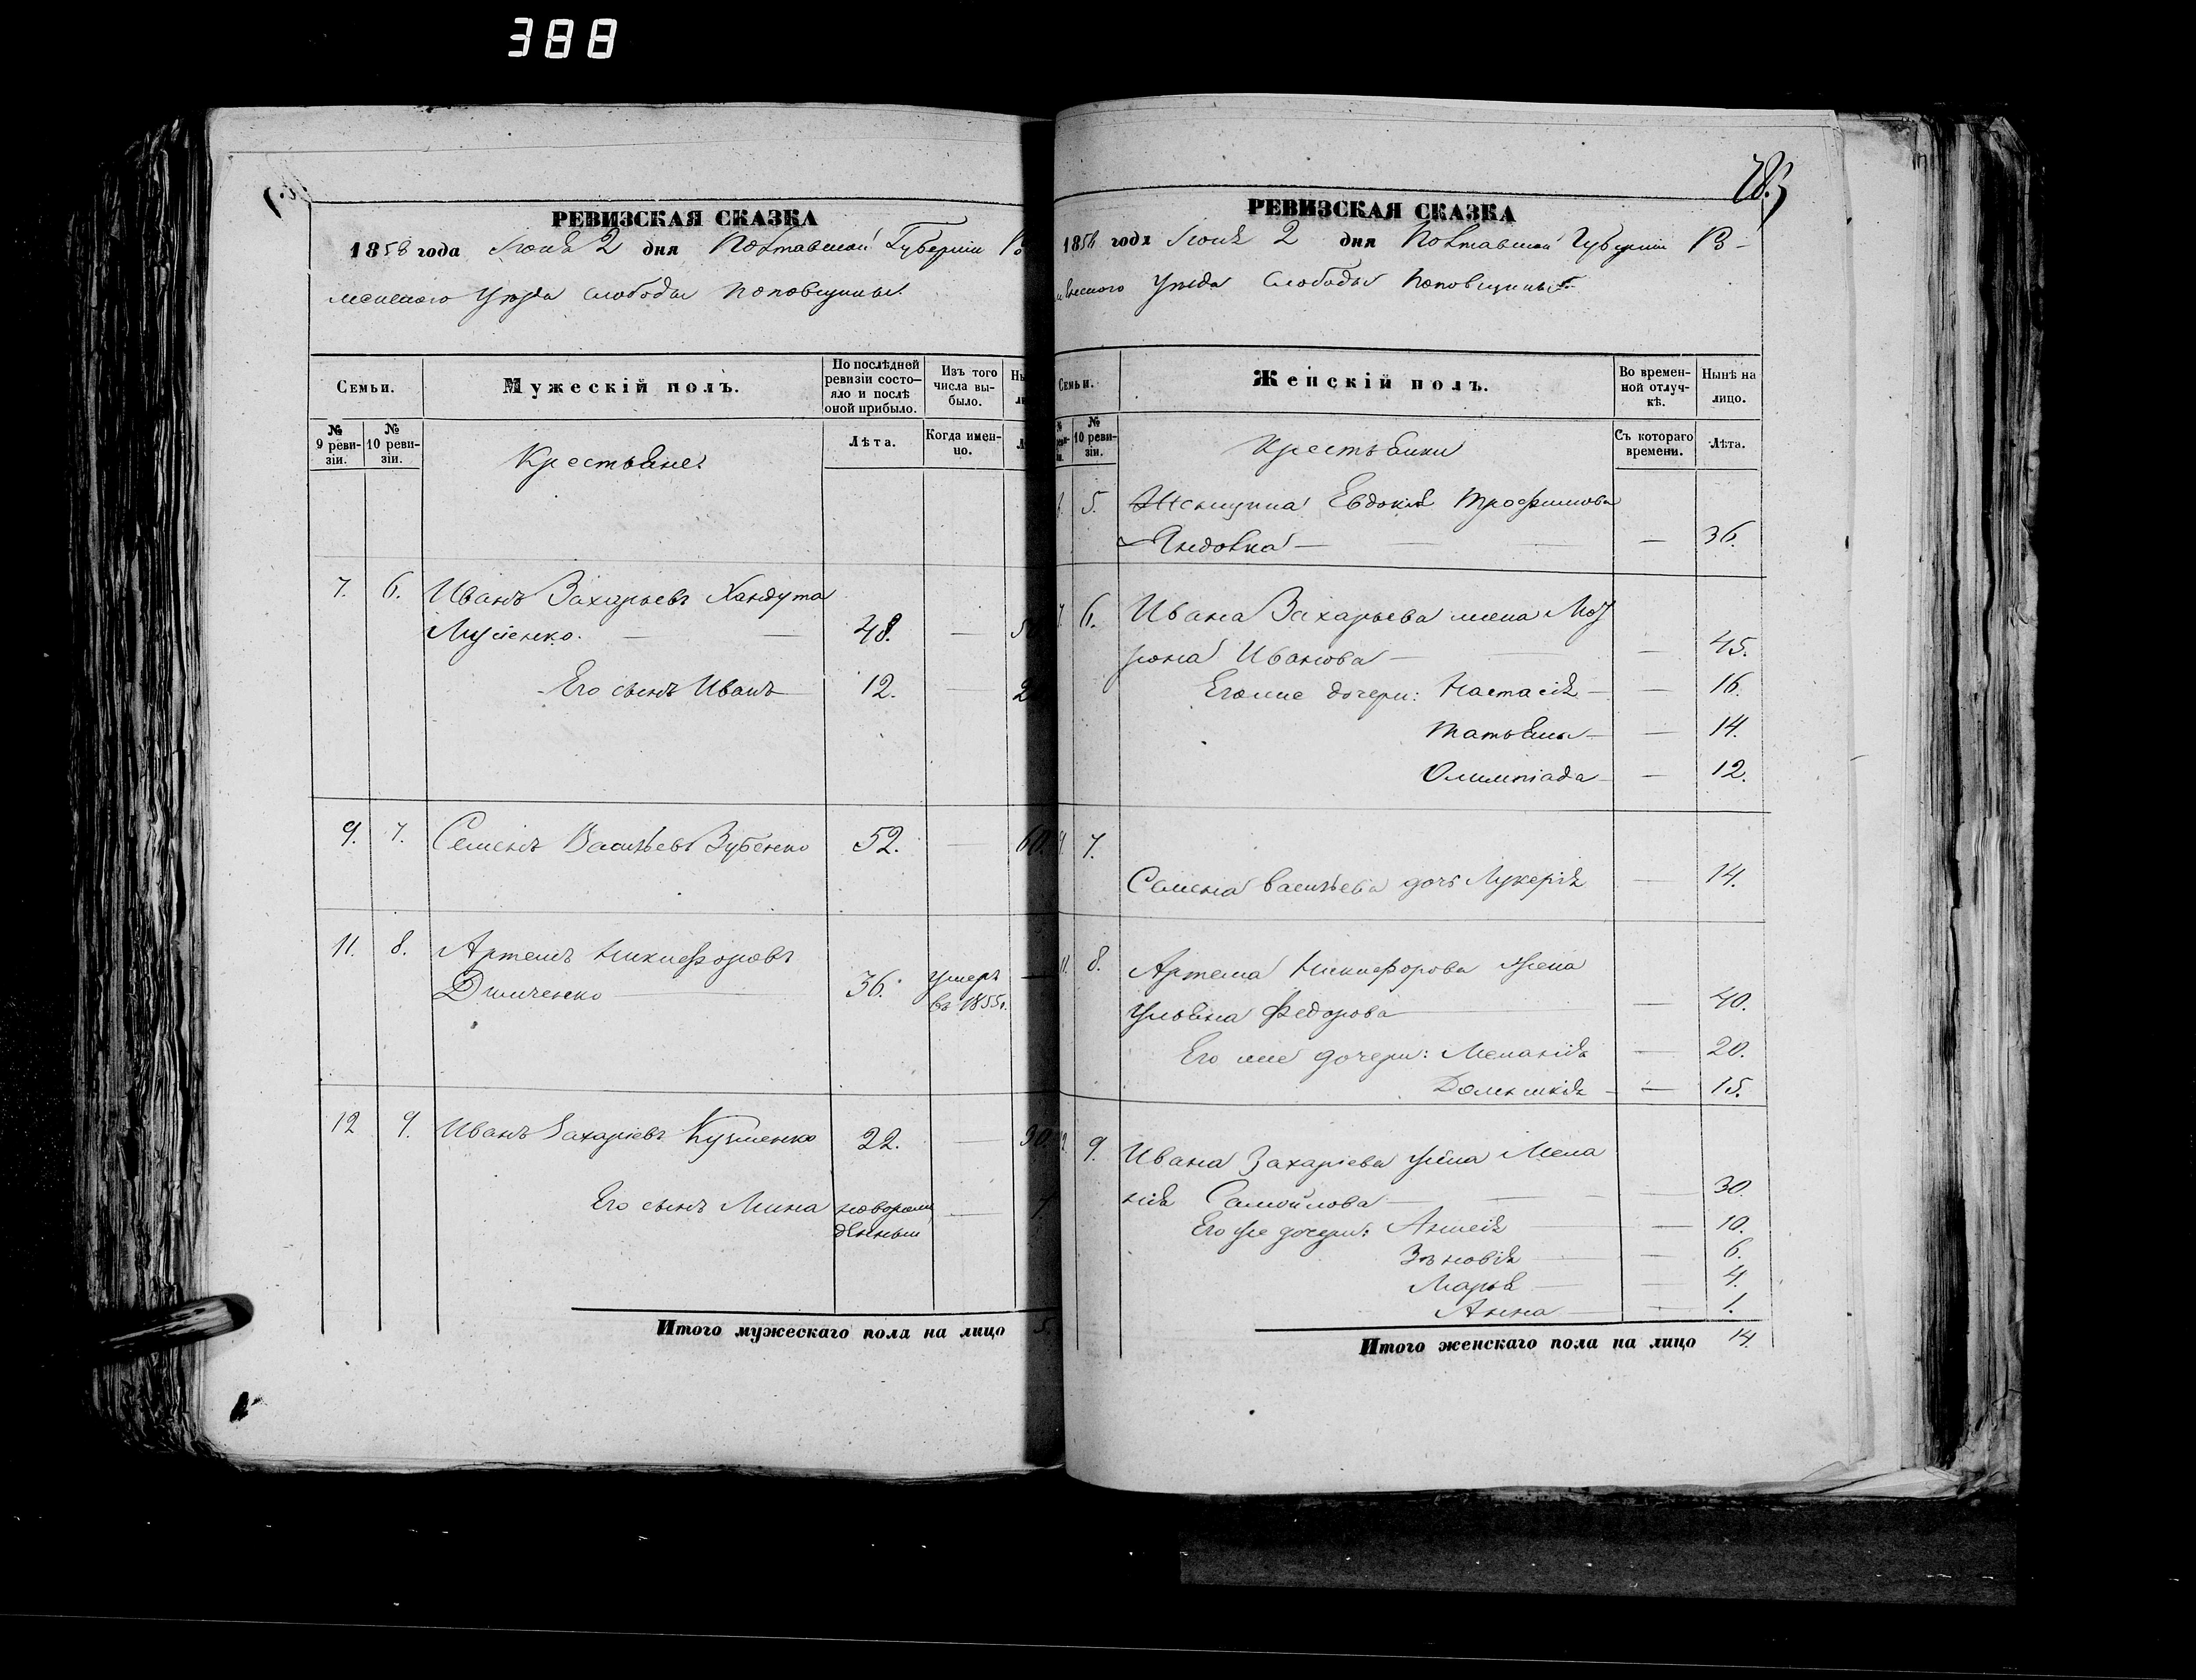 388
РЕВИЗСКАЯ СКАЗКА
1858 года Іюня 2 дня Полтавской Губерніи Р
менского Уѣзда слободы Поповщины.
Семьи.
Мужескій полъ.
По послѣдней ревизіи состояло и послѣ оной прибыло.
Изъ того числа выбыло.
№ 9 ревизіи.
№ 10 ревизіи.
Крестьяне
Лѣта.
Когда именно.
7. 6. Иванъ Захарьевъ
48. —
Его сынъ Иванъ 12. —
9. 7. Семенъ Васильевъ Зубенко 52. — 60.
11. 8. Артемъ Никифоровъ
Димченко 36. умеръ въ 1855г. —
12 9. Иванъ Захаріевъ Кузменко 22. — 30.
Его сынъ Мина новорожденный — 1.
Итого мужескаго пола на лицо 5.
РЕВИЗСКАЯ СКАЗКА
1858 года Іюня 2 дня Полтавской Губерніи Р-
менского Уѣзда Слободы Поповщины
Семьи.
Женскій полъ.
Во временной отлучкѣ.
Нынѣ на лицо.
№ 10 ревизіи.
Крестьянки
Съ котораго времени.
Лѣта.
5. Женщина Евдокія Трофимова
— 36.
7. 6. Ивана Захарьева жена
Иванова — 45.
Его же дочери: Настасія — 16.
Татьяна — 14.
Олимпіада — 12.
9. 7.
Семена Васильева дочь Лукерія — 14.
11. 8. Артема Никифорова жена
Ульяна Федорова — 40.
Его же дочери: Меланія — 20.
Домникія — 15.
12. 9. Ивана Захаріева жена Мела
нія Самойлова — 30.
Его же дочери: Анисія — 10.
Зѣновія — 6.
Марья — 4.
Анна — 1.
Итого женскаго пола на лицо 14.